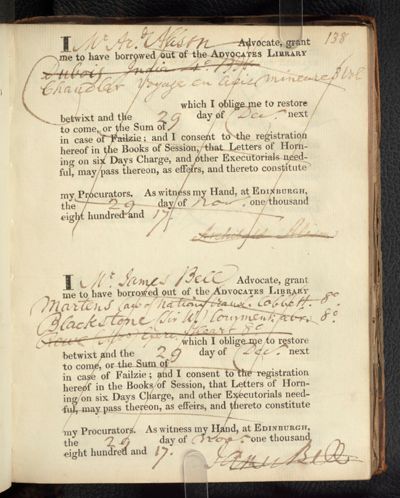 138
I Mr Ard Alison Advocate, grant
me to have borrowed out of the ADVOCATES LIBRARY
Dubois India 4o
Chandler Voyage en Asie mineure 3 Vol.
which I oblige me to restore
betwixt and the 29 day of Decr. next
to come, or the Sum of
in case of Failzie; and I consent to the registration
hereof in the Books of Session, that Letters of Horn-
ing on six Days Charge, and other Executorials need-
ful, may pass thereon, as effeirs, and thereto constitute
my Procurators. As witness my Hand, at EDINBURGH,
the 29 day of Nov. one thousand
eight hundred and 17.
Archibald Alison
I Mr. James Bell Advocate, grant
me to have borrowed out of the ADVOCATES LIBRARY
Martens Law of Nations Cobbett. 8o
Blackstone (Sir W) Comment. 8o
Stewart 8o
which I oblige me to restore
betwixt and the 29 day of Decr. next
to come, or the Sum of
in case of Failzie; and I consent to the registration
hereof in the Books of Session, that Letters of Horn-
ing on six Days Charge, and other Executorials need-
ful, may pass thereon, as effeirs, and thereto constitute
my Procurators. As witness my Hand, at EDINBURGH,
the 29 day of Nov. one thousand
eight hundred and 17.
James Bell